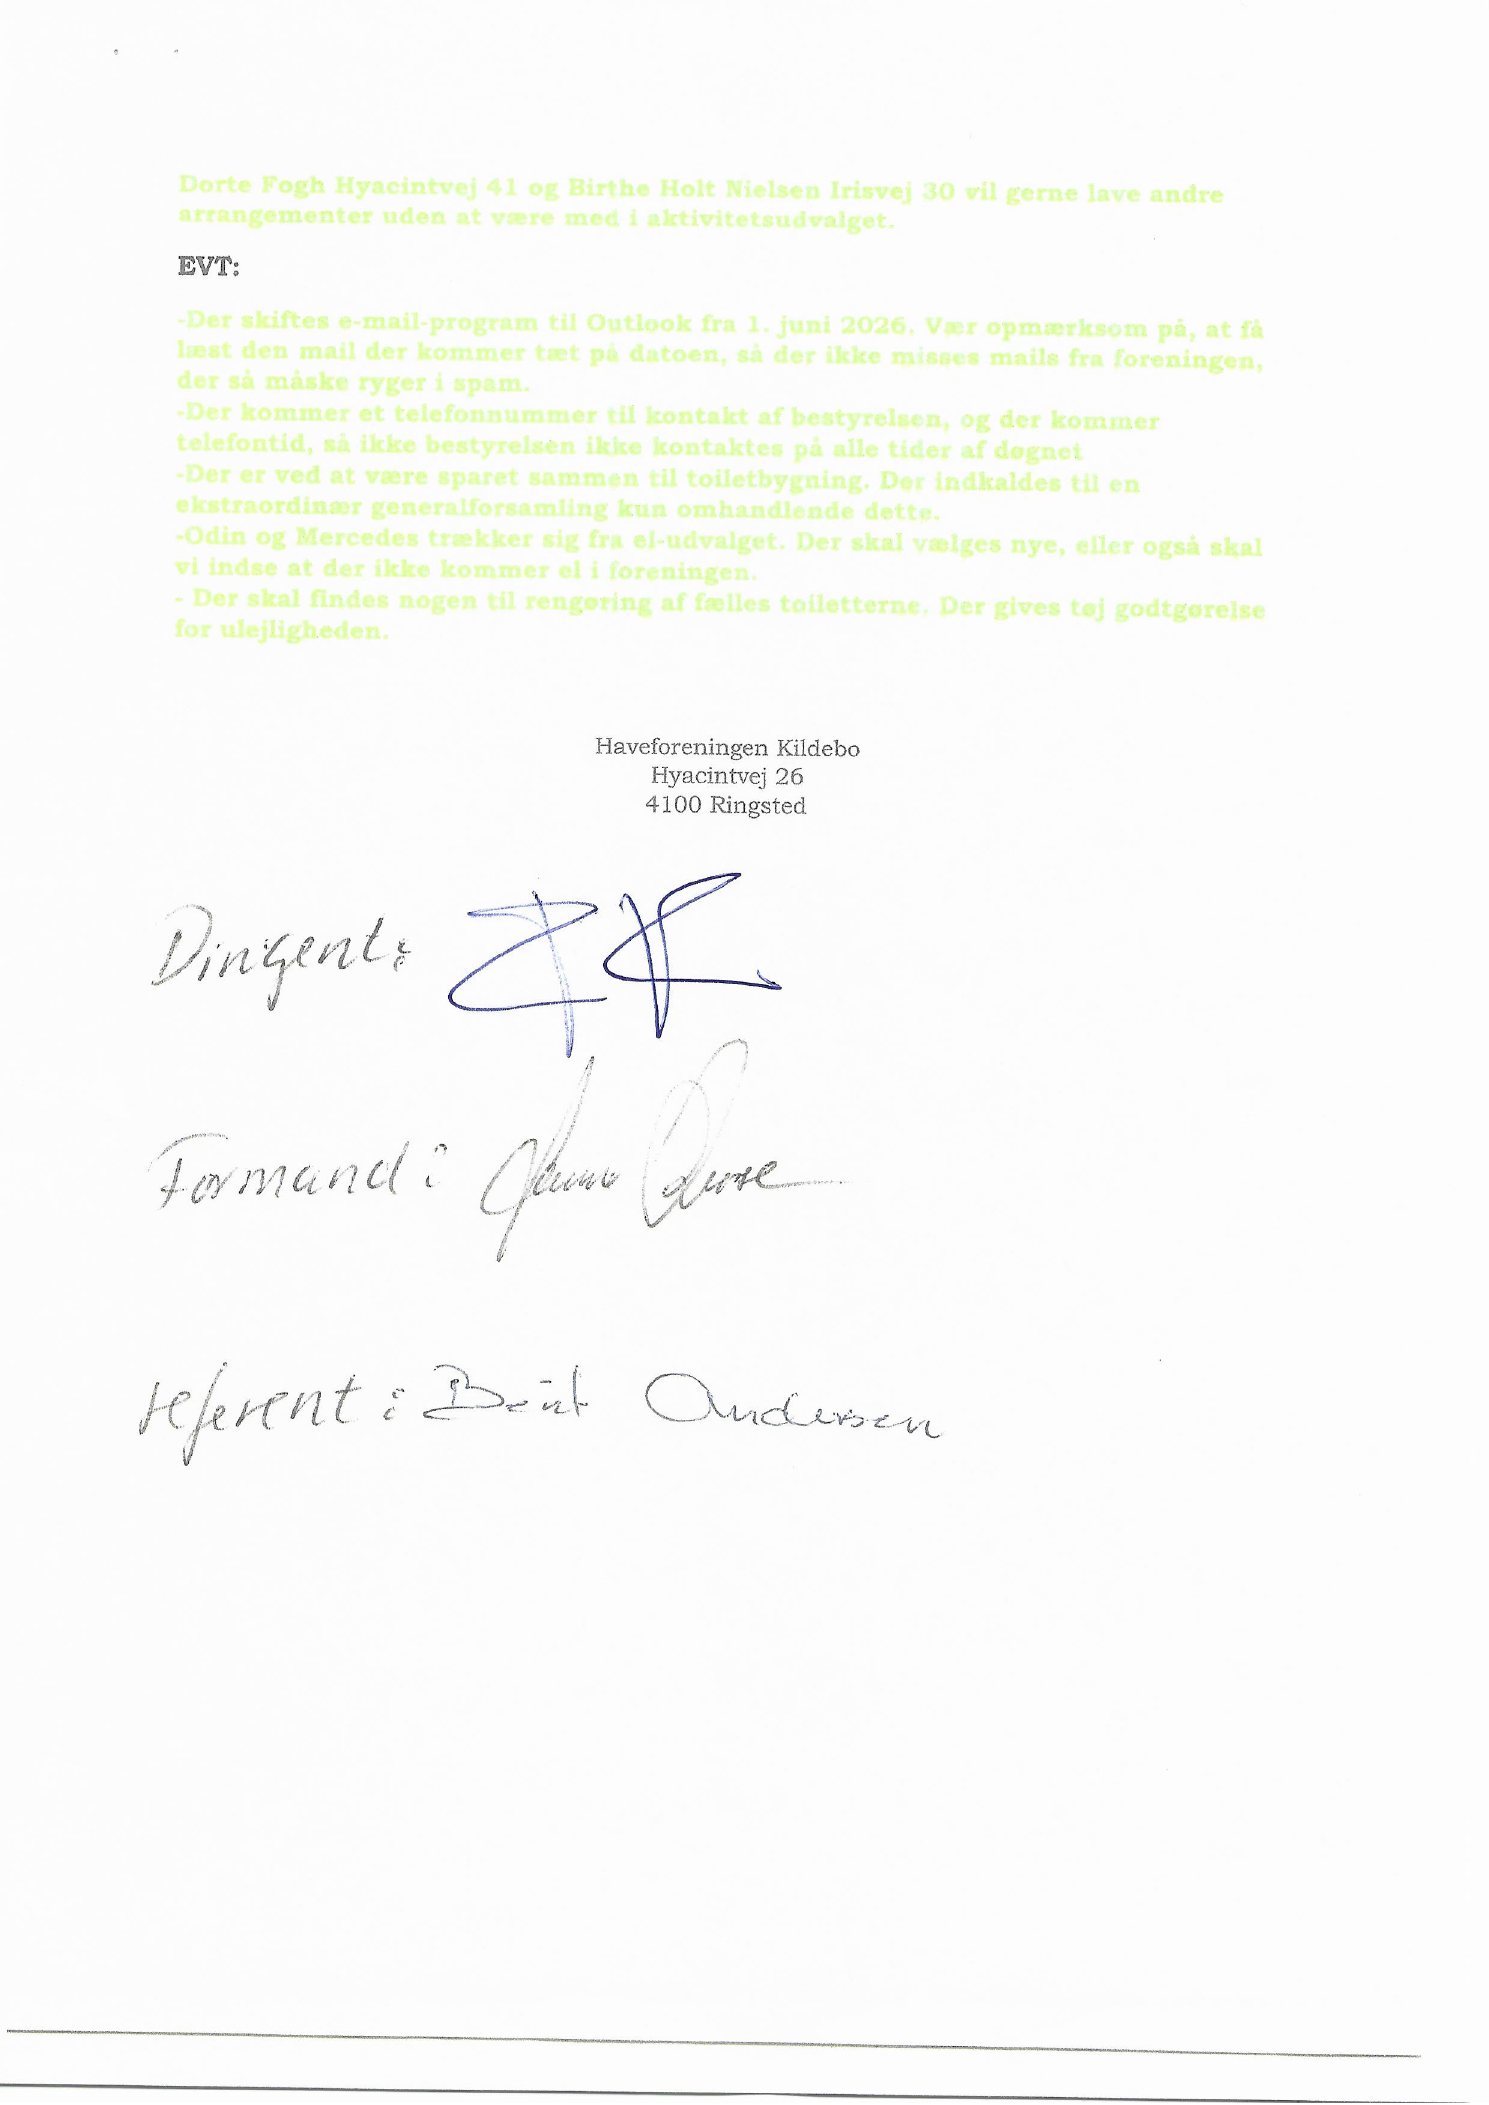 Dorte Fogh Hyacintvej 41 og Birthe Holt Nielsen Irisvej 30 vil gerne lave andre
arrangementer uden at være med i aktivitetsudvalget.
EVT:
-Der skiftes e-mail-program til Outlook fra 1. juni 2026. Vær opmærksom på, at få
læst den mail der kommer tæt på datoen, så der ikke misses mails fra foreningen,
der så måske ryger i spam.
-Der kommer et telefonnummer til kontakt af bestyrelsen, og der kommer
telefontid, så ikke bestyrelsen ikke kontaktes på alle tider af døgnet
-Der er ved at være sparet sammen til toiletbygning. Der indkaldes til en
ekstraordinær generalforsamling kun omhandlende dette.
-Odin og Mercedes trækker sig fra el-udvalget. Der skal vælges nye, eller også skal
vi indse at der ikke kommer el i foreningen.
- Der skal findes nogen til rengøring af fælles toiletterne. Der gives tøj godtgørelse
for ulejligheden.
Haveforeningen Kildebo
Hyacintvej 26
4100 Ringsted
Dirigent:
Formand:
referent: Andersen